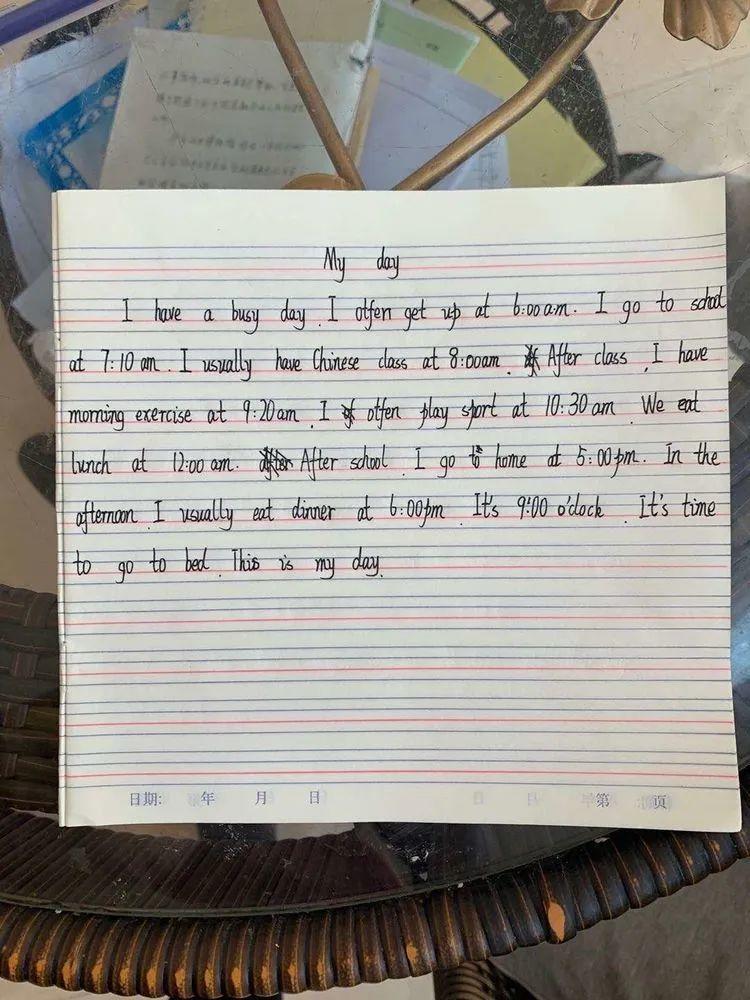 My day
I have a busy day. I otfen get up at 6:00 am. I go to school
at 7:10 am. I usually have Chinese class at 8:00am. After class, I have
morning exercise at 9:20am. I otfen play sport at 10:30 am. We eat
lunch at 12:00 am. After school, I go to home at 5:00pm. In the
afternoon. I usually eat dinner at 6:00pm. It's 9:00 o'clock. It's time
to go to bed. This is my day.
日期: 年 月 日 第 页